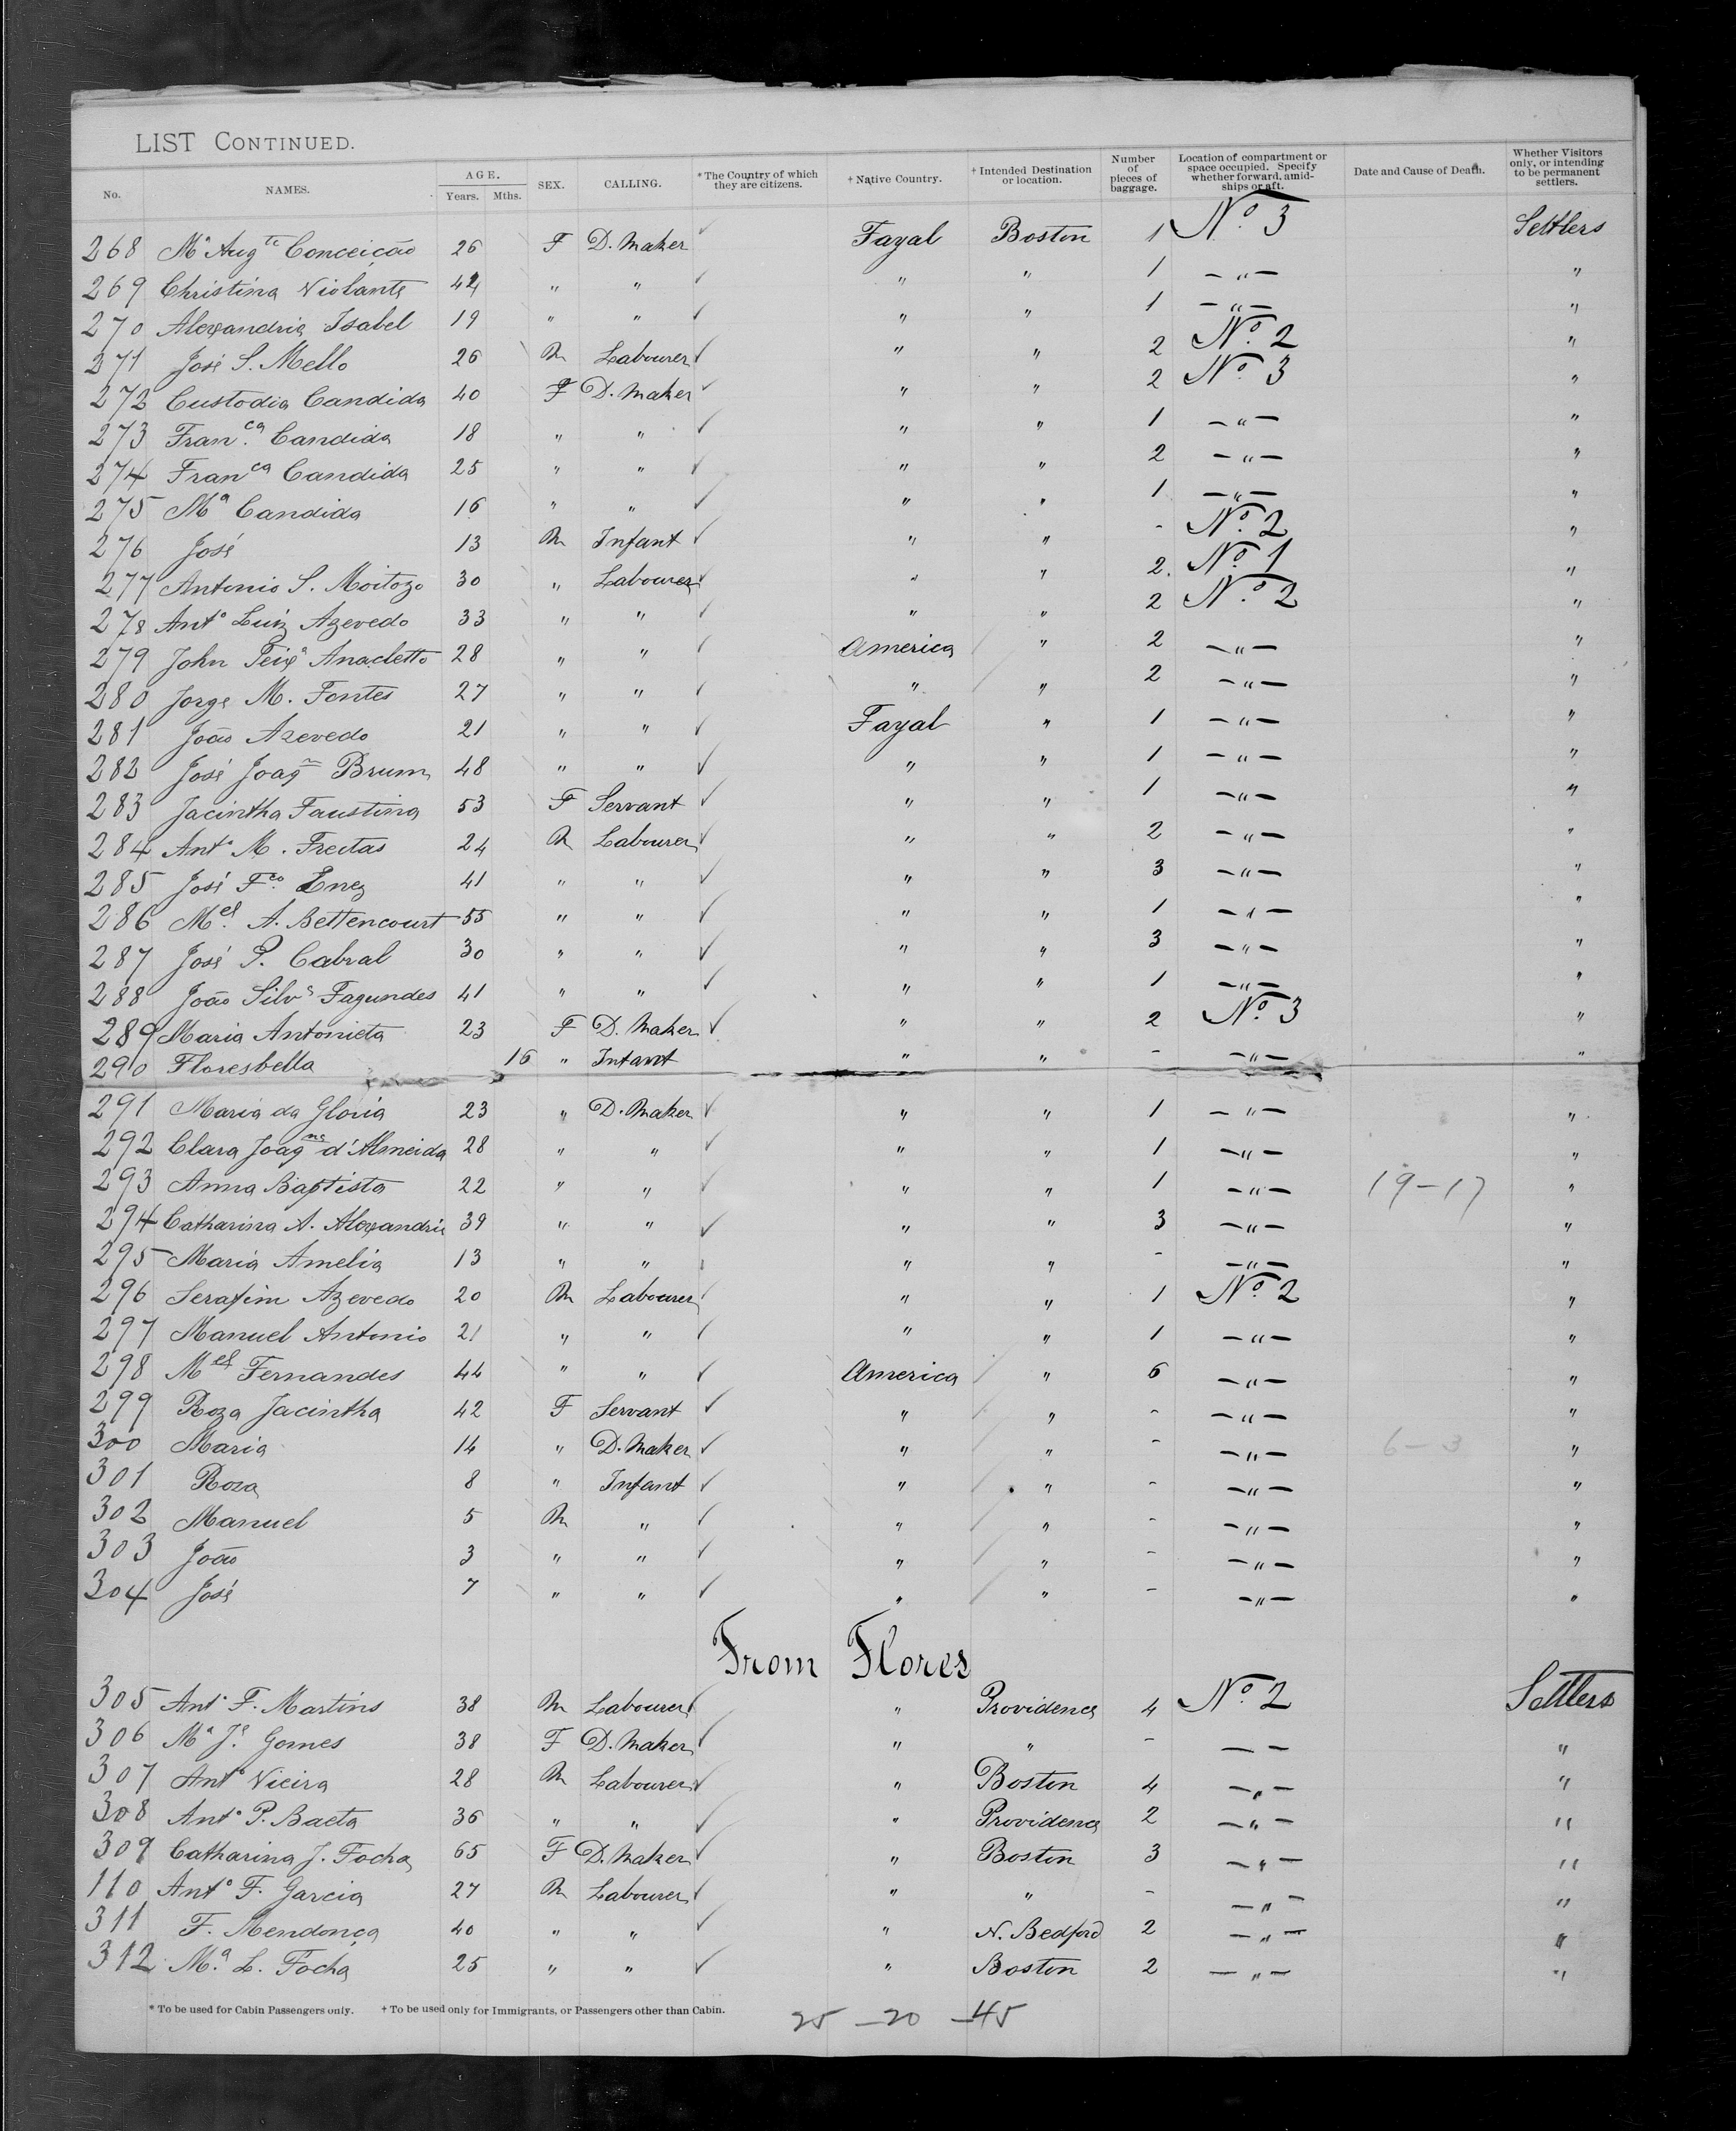 LIST CONTINUED.
No. NAMES. AGE. Years. Mths. SEX. CALLING. *The Country of which they are citizens. †Native Country. †Intended Destination or location. Number of pieces of baggage. Location of compartment or space occupied. Specify whether forward, amid-ships or aft. Date and Cause of Death. Whether Visitors only, or intending to be permanent settlers.
268 Mª Augta Conceição 26 F D. Maker ✓ Fayal Boston 1 Nº 3 Settlers
269 Christina Violante 42 " " ✓ " " 1 — " — "
270 Alexandria Isabel 19 " " ✓ " " 1 — " — "
271 José S. Mello 26 M Labourer ✓ " " 2 Nº 2 "
272 Custodia Candida 40 F D. Maker ✓ " " 2 Nº 3 "
273 Fran.ca Candida 18 " " ✓ " " 1 — " — "
274 Franca Candida 25 " " ✓ " " 2 — " — "
275 Mª Candida 16 " " ✓ " " 1 — " — "
276 José 13 M Infant ✓ " " - Nº 2 "
277 Antonio S. Moitozo 30 " Labourer ✓ " " 2 Nº 1 "
278 Antº Luiz Azevedo 33 " " ✓ " " 2 Nº 2 "
279 John Teixª Anacletto 28 " " ✓ America " 2 — " — "
280 Jorge M. Fontes 27 " " ✓ " " 2 — " — "
281 João Azevedo 21 " " ✓ Fayal " 1 — " — "
282 José Joaqm Brum 48 " " ✓ " " 1 — " — "
283 Jacintha Faustina 53 F Servant ✓ " " 1 — " — "
284 Antº M. Freitas 24 M Labourer ✓ " " 2 — " — "
285 José Fco. Enez 41 " " ✓ " " 3 — " — "
286 Mel. A. Bettencourt 55 " " ✓ " " 1 — " — "
287 José P. Cabral 30 " " ✓ " " 3 — " — "
288 João Silvª Fagundes 41 " " ✓ " " 1 — " — "
289 Maria Antonieta 23 F D. Maker ✓ " " 2 Nº 3 "
290 Floresbella 16 " Infant " " - — " — "
291 Maria da Gloria 23 " D. Maker ✓ " " 1 — " — "
292 Clara Joaqna d'Almeida 28 " " ✓ " " 1 — " — "
293 Anna Baptista 22 " " ✓ " " 1 — " — 19–17 "
294 Catharina A. Alexandria 39 " " ✓ " " 3 — " — "
295 Maria Amelia 13 " " " " - — " — "
296 Serafim Azevedo 20 M Labourer ✓ " " 1 Nº 2 "
297 Manuel Antonio 21 " " ✓ " " 1 — " — "
298 Mel Fernandes 44 " " ✓ America " 6 — " — "
299 Roza Jacintha 42 F Servant ✓ " " - — " — "
300 Maria 14 " D. Maker ✓ " " - — " — 6–3 "
301 Roza 8 " Infant ✓ " " - — " — "
302 Manuel 5 M " ✓ " " - — " — "
303 João 3 " " ✓ " " - — " — "
304 José 7 " " ✓ " " - — " — "
From Flores
305 Antº F. Martins 38 M Labourer ✓ " Providence 4 Nº 2 Settlers
306 Mª Jª. Gomes 38 F D. Maker ✓ " " - — — "
307 Antº Vieira 28 M Labourer ✓ " Boston 4 — " — "
308 Antº P. Baeta 36 " " ✓ " Providence 2 — " — "
309 Catharina J. Focha 65 F D. Maker ✓ " Boston 3 — " — "
110 Antº F. Garcia 27 M Labourer ✓ " " - — " — "
311 F. Mendonça 40 " " ✓ " N. Bedford 2 — " — "
312 Mª. L. Focha 25 " " ✓ " Boston 2 — " — "
*To be used for Cabin Passengers only. †To be used only for Immigrants, or Passengers other than Cabin.
25 — 20 — 45